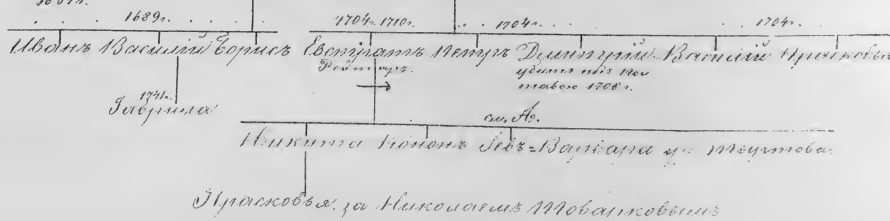 1689г. 1704г. 1710г. 1704г. 1704г.
Иванъ Василій Борисъ Евстратъ Петръ Дмитрій Василій Прасковья
Рейтаръ. убитъ подъ Пол
тавою 1708г.
1741г.
Гаврила
см. А.
Никита Кононъ Левъ=Варвара ур.
Прасковья за Николаемъ Товарковымъ